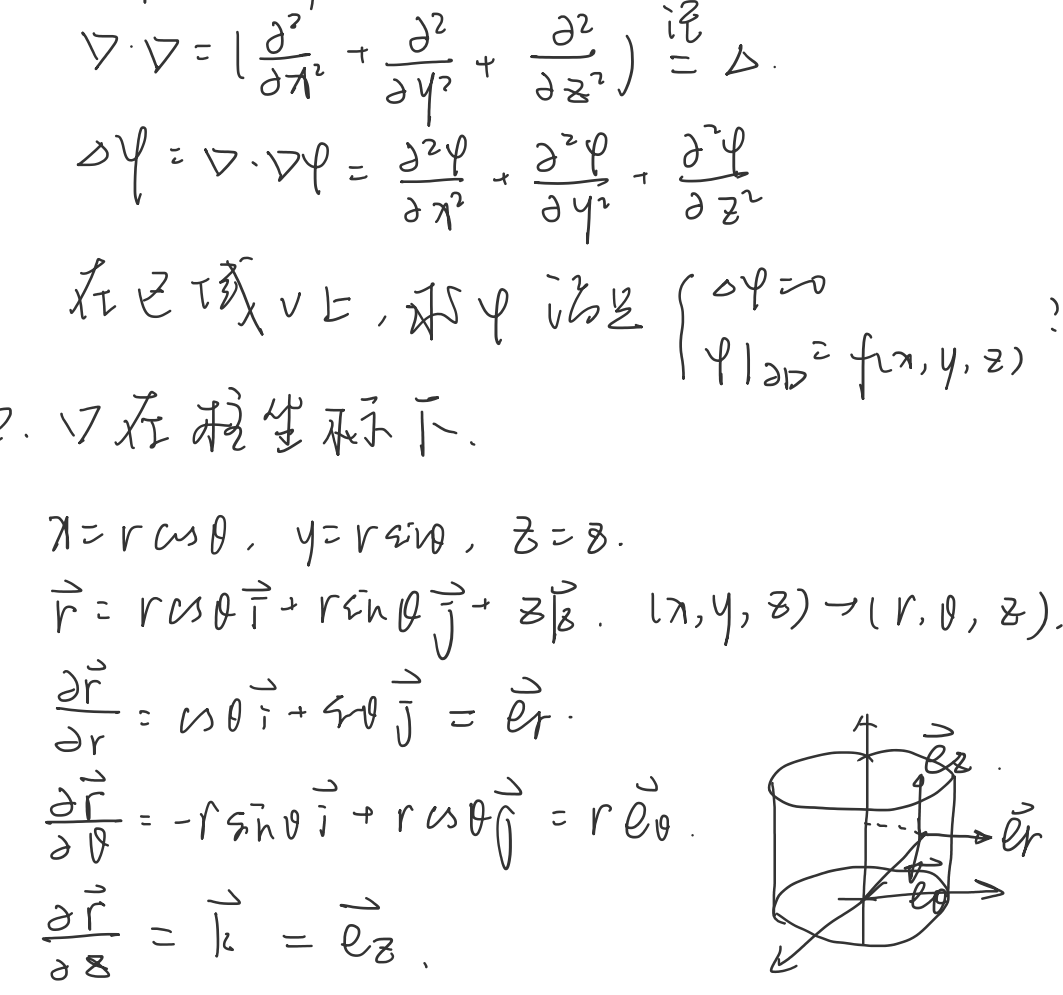 ∇·∇ = (∂²/∂x² + ∂²/∂y² + ∂²/∂z²) 记= Δ.
Δφ = ∇·∇φ = ∂²φ/∂x² + ∂²φ/∂y² + ∂²φ/∂z²
在区域 V 上, 求 φ 满足 { Δφ=0
φ|∂D = f(x, y, z) ?
2. ∇在柱坐标下.
x = r cosθ, y = r sinθ, z = z.
r⃗ = r cosθ i⃗ + r sinθ j⃗ + z k⃗. (x, y, z) → (r, θ, z).
∂r⃗/∂r = cosθ i⃗ + sinθ j⃗ = e⃗r.
∂r⃗/∂θ = -r sinθ i⃗ + r cosθ j⃗ = r e⃗θ.
∂r⃗/∂z = k⃗ = e⃗z.
e⃗z
e⃗r
e⃗θ